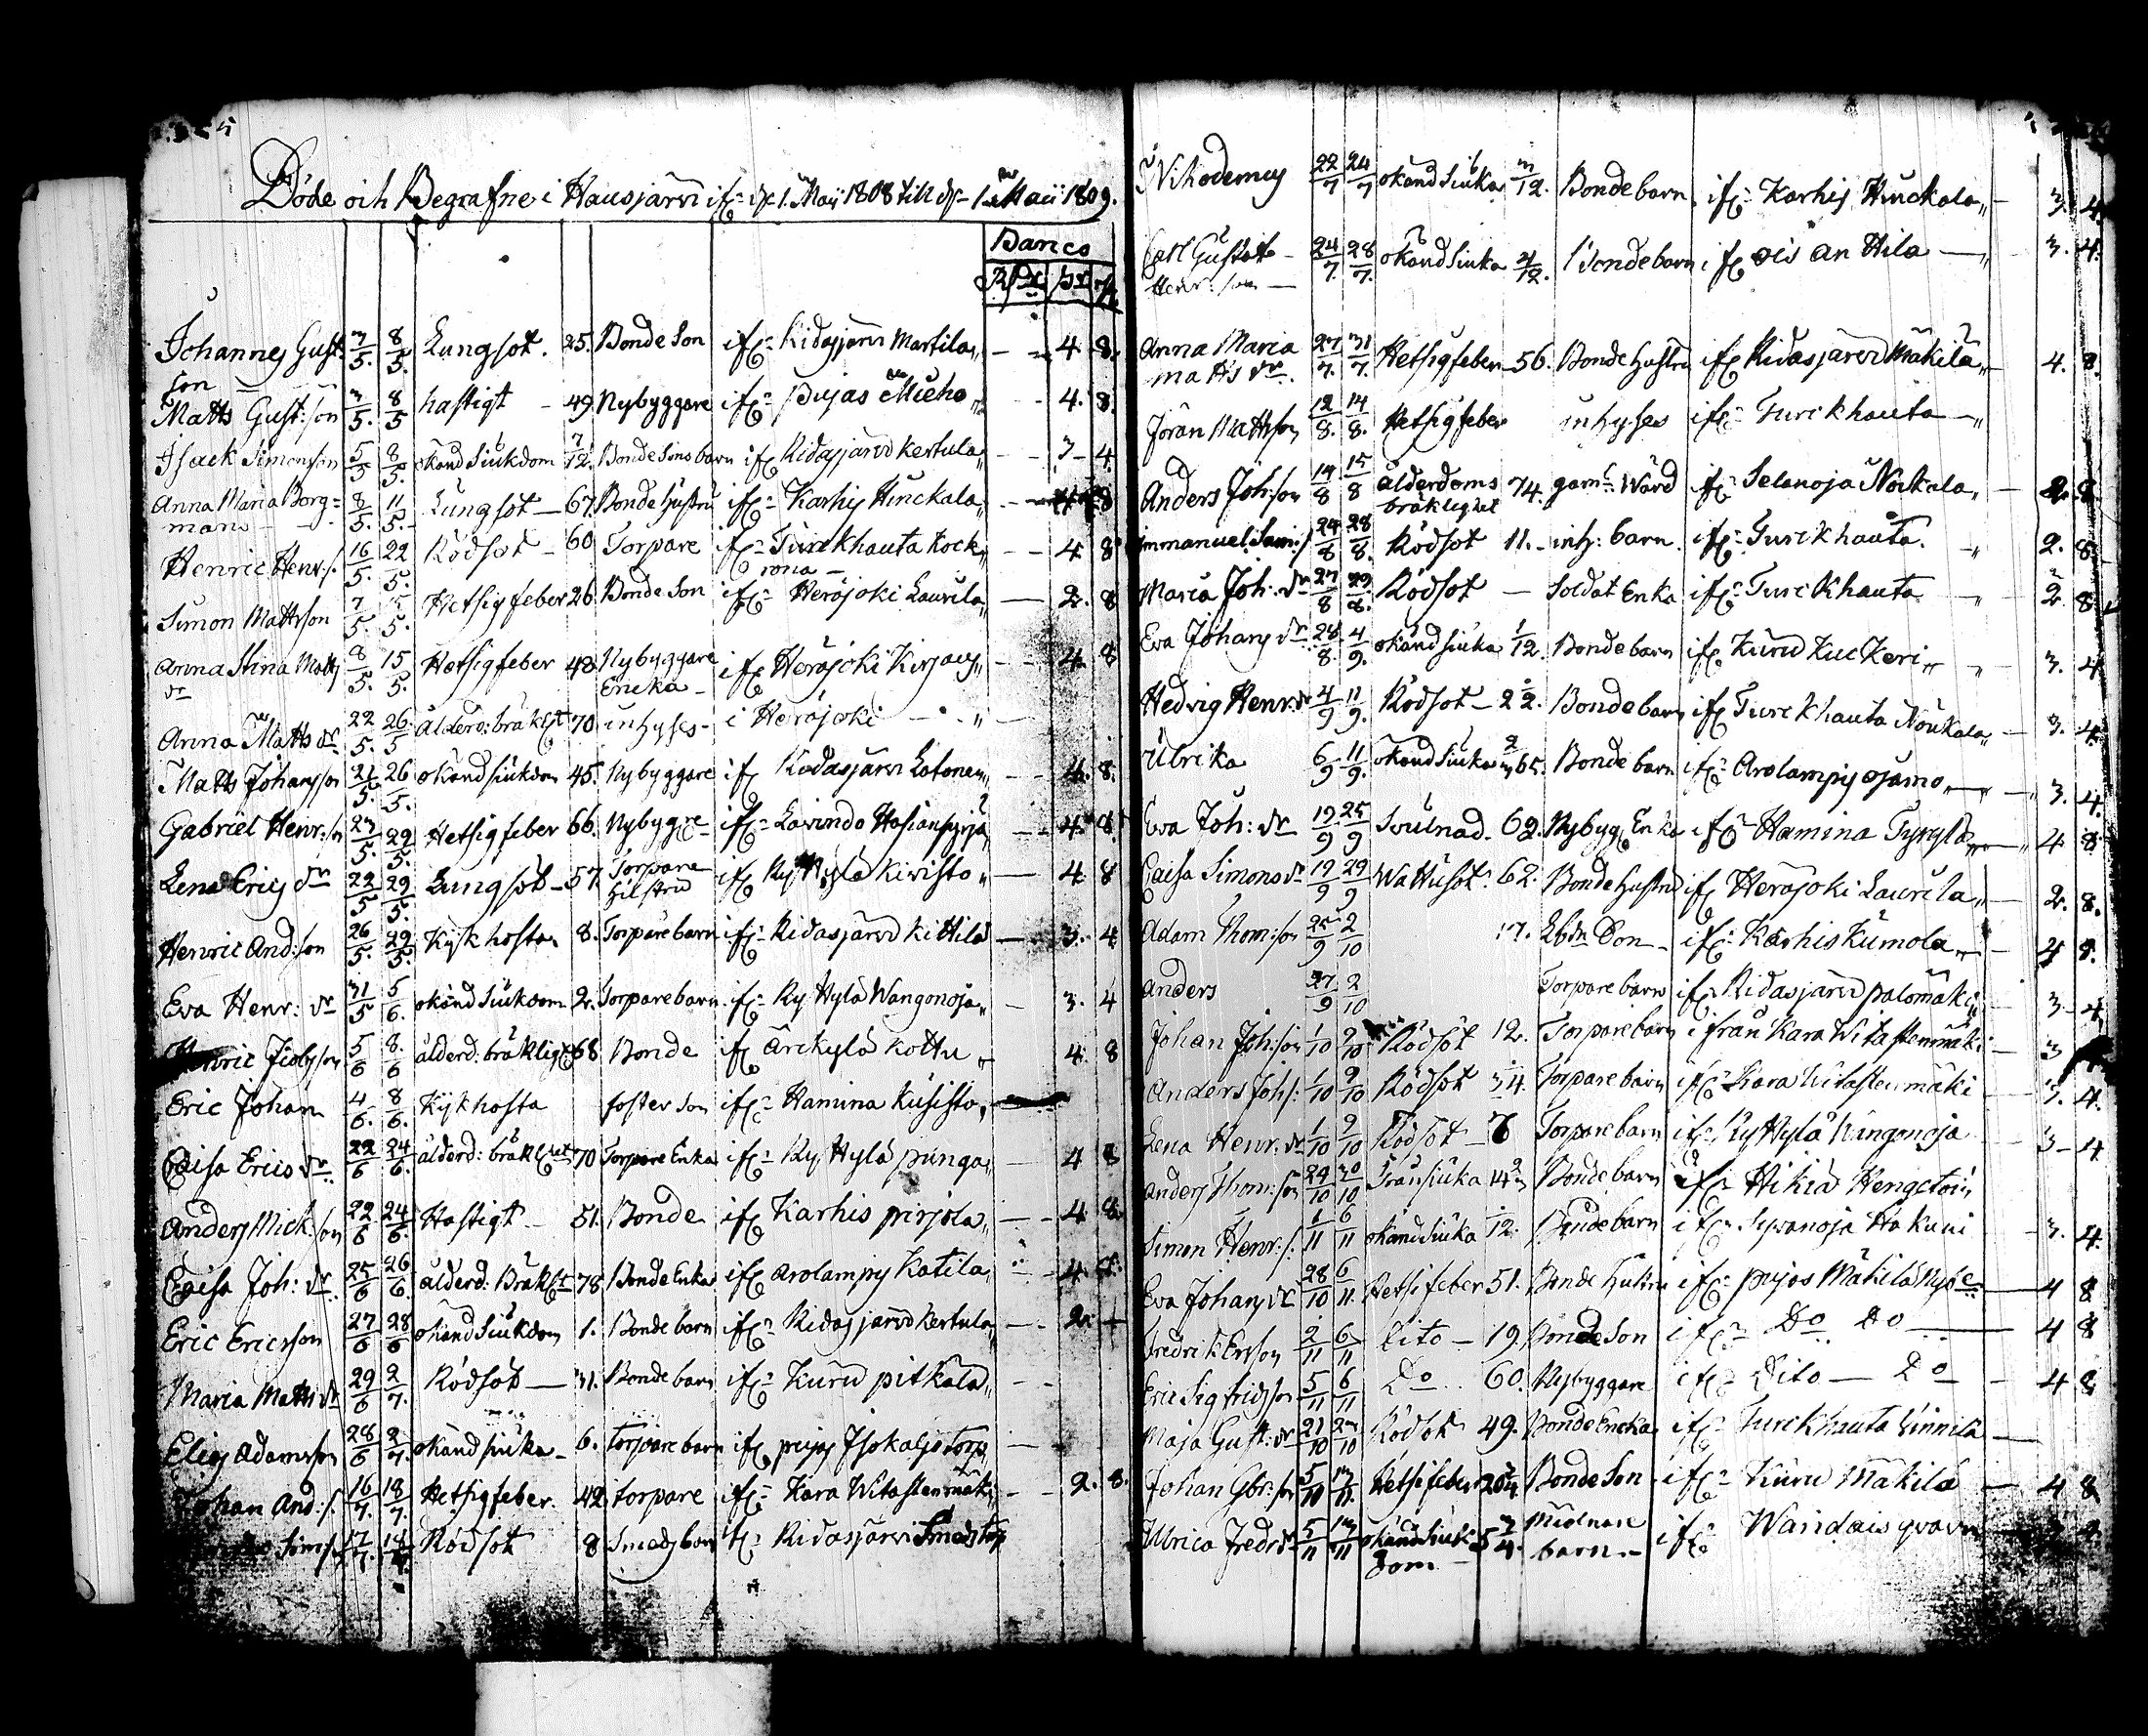 Döde och Begrafne i Hausjärvi ifr: d: 1. Maij 1808 till d: 1 Maii 1809.
Banco
Johannes Gust: 7/5. 8/5. Lungsot. 25. Bonde Son ifr: Ridasjärvi Martila „ 4. 8.
son
Matts Gust:son 3/5. 8/5 hastigt 49 Nybyggare ifr: Pujas „ 4. 8.
Isack Simonsson 5/5 8/5. okänd Siukdom 7/12. Bonde Sons barn ifr Ridasjärvi Kertula „ 3 4.
Anna Maria Borg= 8/5. 11/5. Lungsot 67. Bonde Hustru ifr: Karhis Huckala „ 4 8
man
Henric Henr:s. 16/5. 22/5. Rödsot 60 Torpare ifr: Turckhauta Kock „ 4 8
rona
Simon Mattsson 7/5. 15/5. Hetsig feber 26. Bonde Son ifr: Heräjoki Laurila „ 2. 8
Anna Stina Matts 8/5. 15/5. Hetsig feber 48. Nybyggare ifr Heräjoki Kirjaus „ 4. 8
dr Encka
Anna Matts dr 22/5. 26/5 Älderd: bräklht 70 inhyses i Heräjoki „
Matts Johansson 21/5. 26/5. okänd siukdom 45. Nybyggare ifr Ridasjärvi Latonen „ 4. 8.
Gabriel Henr:sn 23/5. 29/5. Hetsig feber 66. Nybygre ifr: Lavindo „ 4. 8
Lena Erics dr 22/5 29/5. Lungsot 57. Torpare ifr Ry Hylä Kivisto „ 4. 8
Hustru
Henric And:son 26/5. 29/5. Kykhosta 8. Torpare barn ifr: Ridasjärvi Kittilä 3. 4
Eva Henr: dr 31/5 5/6. okänd siukdom 2. Torpare barn ifr: Ry Hylä Wangonoja „ 3. 4
Henric Jacobsson 5/6 8/6 älderd. bräklight 68 Bonde ifr Ärckylä Kottu „ 4. 8
Eric Johan 4/6. 8/6. Kykhosta foster son ifr: Hamina Kusisto „
Caisa Erics dr 22/6 24/6. älderd: bräklhet 70 Torpare Enka ifr: Ry Hylä punga „ 4 8
Anders Mick:son 22/6 24/6. Hastigt 51. Bonde ifr Karhis pirjola „ 4 8.
Caisa Joh: dr 25/6 26/6. älderd. Bräklht 78 Bonde Enka ifr Arolampy Katila „ 4
Eric Ericsson 27/6 28/6 okänd Siukdom 1. Bonde barn ifr: Ridasjärvi Kertula „ 2.
Maria Matts dr 29/6 2/7. Rödsot 31. Bonde barn ifr: Kuru pitkälä „
Elias Adamsson 28/6 2/7. okänd siuka 6. torpare barn ifr pujas
Johan And:s. 16/7. 18/7. Hetsig feber. 42. torpare ifr: Kara Witastenmäki 2. 8.
Sims. 17/7. Rödsot 8 Smeds barn ifr: Ridasjärvi Smeds torp
Nikodemus 22/7 24/7 okänd Siuka 3/12. Bonde barn ifr: Karhis Huckala „ 3. 4.
Carl Gustaf 24/7. 28/7. okänd siuka 4/12. Bonde barn ifr Ois an Hila „ 3. 4.
Henr: son
Anna Maria 27/7. 31/7. Hetsig feber 56. Bonde Hustru ifr Ridasjärvi Mäkilä 4. 8.
Matts dr.
Jöran Mattsson 12/8. 14/8. Hetsig feber inhyses ifr: Turckhauta „
Anders Joh:son 14/8 15/8 älderdoms 74. gaml: Wärd ifr: Selanoja Nockala „ 2. 8.
bräklighet
Immanuel Sam:s 24/8 28/8. Rödsot 11. inh: barn ifr: Turckhauta „ 2. 8.
Maria Joh: dr 27/8 29/8. Rödsot Soldat Enka ifr: Turckhauta „ 2. 8
Eva Johans dr 28/8. 4/9. okänd siuka 1/12. Bonde barn ifr Kuru Kuckeri „ 3. 4
Hedvig Henr: dr 4/9 11/9. Rödsot 2 2. Bonde barn ifr Turckhauta Noukala „ 3. 4.
Ulrika 6/9 11/9. okänd Siuka Bonde barn ifr: Arolampis ojamo „ 3. 4.
Eva Joh: dr 19/9 25/9 Svulnad 62. Nybyg: Enka ifr Hamina Tyrylä „ 4 8.
Caisa Simons dr 19/9 29/9 Wattusot. 62. Bonde Hustru ifr Heräjoki Laurila „ 2. 8.
Adam Thom:son 25/9 2/10 17. Lbdn Son ifr: Karhis Kumola „ 4 8.
Anders 27/9 2/10 Torpare barn ifr Ridasjärvi palomäki „ 3 4.
Johan Joh:son 1/10 9/10 Rödsot 12. Torpare barn ifrån Kara Witastenmäki 3
Anders Joh s: 1/10 9/10 Rödsot Torpare barn ifr: Kara Witastenmäki 3. 4.
Lena Henr: dr 1/10 9/10 Rödsot 6 Torpare barn ifr: Ry Hylä Wangonoja 3 4
Anders Thom:son 24/10 30/10 Tränsiuka Bonde barn ifr Hikiä Hengetoin
Simon Henr:s. 1/11 6/11 okänd siuka /12. Bonde barn ifr: Syvänoja Hakuni 3. 4.
Eva Johans dr 28/10 6/11. Hetsi feber 51. Bonde Hustru ifr: pujos Mäkilä Nybe 4 8
Fredrik Ersson 2/11 6/11 Dito 19. Bonde Son ifr: Do Do 4 8
Eric Sigfridsson 5/11 6/11 Do 60. Nybyggare ifr: Dito Do 4 8
Maja Gust: dr 21/10 23/10 Rödsot 49. Bonde Encka ifr: Turckhauta Linnila
Johan Gbr:son 5/11 13/11. Hetsi feber Bonde Son ifr: Kuru Mäkilä 4 8
Ulrica Fredr dr 5/11 13/11 okänd Siuk Miölnare ifr: Wandais qvarn
dom barn